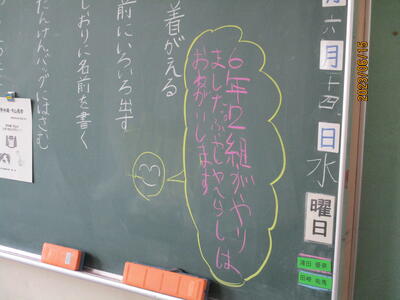 六月十四日水曜日
6年2組がやり
ました
おねがいします
着がえる
前にいろいろ出す
しおりに名前を書く
たんけんバッグにはさむ
2023/06/15